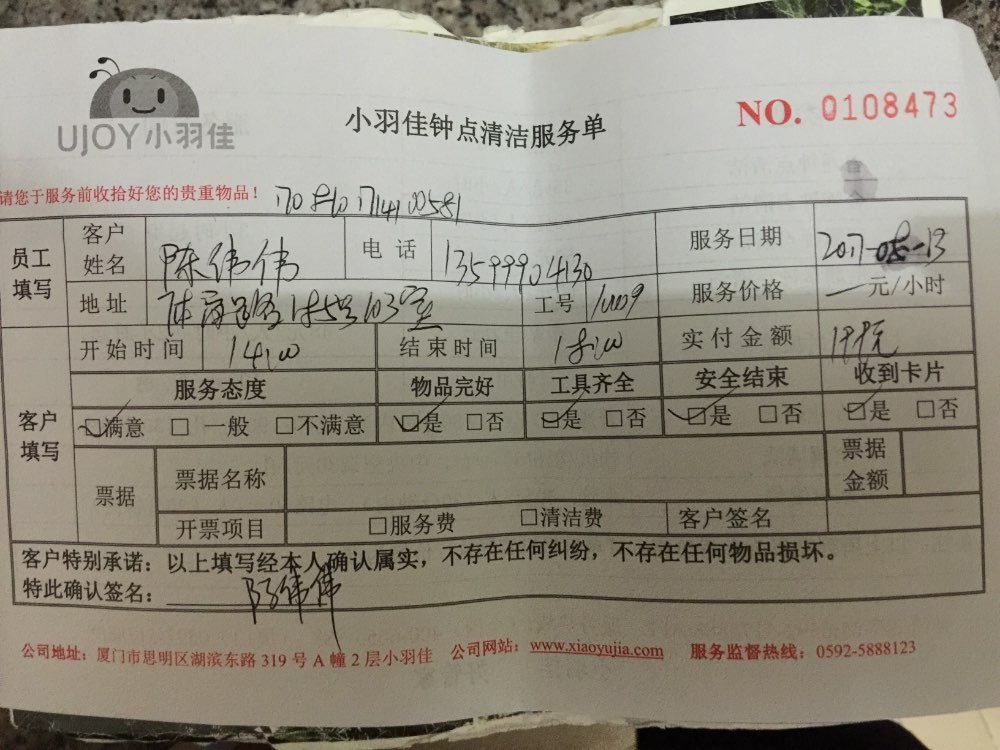 UJOY小羽佳
小羽佳钟点清洁服务单
NO. 0108473
请您于服务前收拾好您的贵重物品！
员工填写
客户姓名 陈伟伟 电话 13599904130 服务日期 2017-08-13
地址 103室 工号 服务价格 — 元/小时
开始时间 14:00 结束时间 18:00 实付金额
客户填写
服务态度 物品完好 工具齐全 安全结束 收到卡片
☑满意 □ 一般 □不满意 ☑是 □否 ☑是 □否 ☑是 □否 ☑是 □否
票据 票据名称 票据金额
开票项目 □服务费 □清洁费 客户签名
客户特别承诺：以上填写经本人确认属实，不存在任何纠纷，不存在任何物品损坏。
特此确认签名： 陈伟伟
公司地址：厦门市思明区湖滨东路 319 号 A 幢 2 层小羽佳 公司网站：www.xiaoyujia.com 服务监督热线：0592-5888123